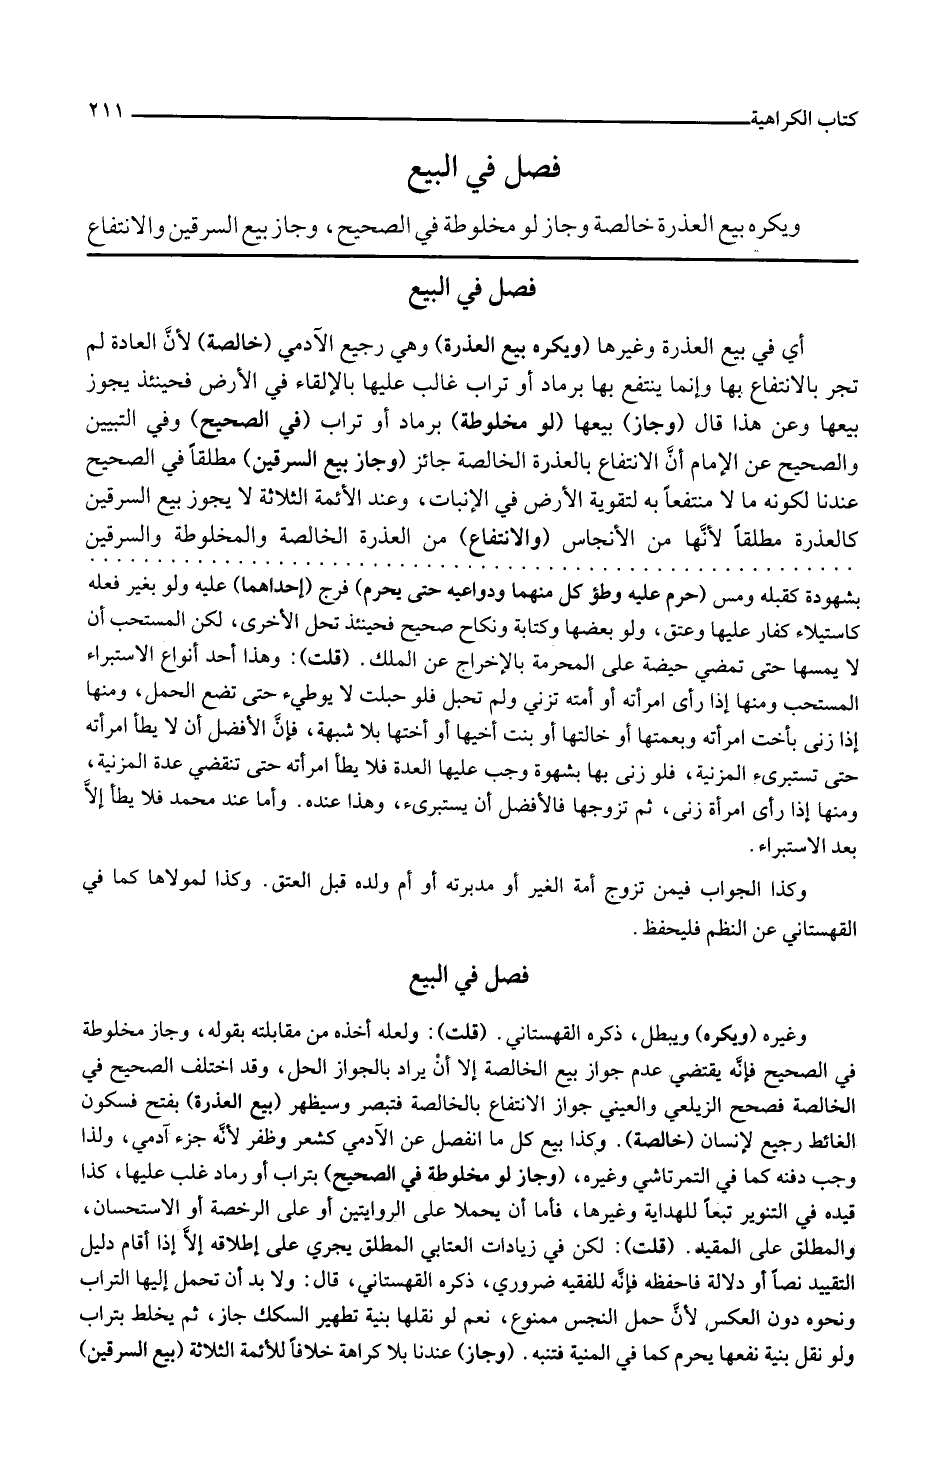 كتاب الكراهية ٢١١
فصل في البيع
ويكره بيع العذرة خالصة وجاز لو مخلوطة في الصحيح، وجاز بيع السرقين والانتفاع
فصل في البيع
أي في بيع العذرة وغيرها (ويكره بيع العذرة) وهي رجيع الآدمي (خالصة) لأنَّ العادة لم
تجر بالانتفاع بها وإنما ينتفع بها برماد أو تراب غالب عليها بالإلقاء في الأرض فحينئذ يجوز
بيعها وعن هذا قال (وجاز) بيعها (لو مخلوطة) برماد أو تراب (في الصحيح) وفي التبيين
والصحيح عن الإمام أنَّ الانتفاع بالعذرة الخالصة جائز (وجاز بيع السرقين) مطلقاً في الصحيح
عندنا لكونه ما لا منتفعاً به لتقوية الأرض في الإنبات، وعند الأئمة الثلاثة لا يجوز بيع السرقين
كالعذرة مطلقاً لأنَّها من الأنجاس (والانتفاع) من العذرة الخالصة والمخلوطة والسرقين
بشهودة كقبله ومس (حرم عليه وطؤ كل منهما ودواعيه حتى يحرم) فرج (إحداهما) عليه ولو بغير فعله
كاستيلاء كفار عليها وعتق، ولو بعضها وكتابة ونكاح صحيح فحينئذ تحل الأخرى، لكن المستحب أن
لا يمسها حتى تمضي حيضة على المحرمة بالإخراج عن الملك. (قلت): وهذا أحد أنواع الاستبراء
المستحب ومنها إذا رأى امرأته أو أمته تزني ولم تحبل فلو حبلت لا يوطيء حتى تضع الحمل، ومنها
إذا زنى بأخت امرأته وبعمتها أو خالتها أو بنت أخيها أو أختها بلا شبهة، فإنَّ الأفضل أن لا يطأ امرأته
حتى تستبرىء المزنية، فلو زنى بها بشهوة وجب عليها العدة فلا يطأ امرأته حتى تنقضي عدة المزنية،
ومنها إذا رأى امرأة زنى، ثم تزوجها فالأفضل أن يستبرىء، وهذا عنده. وأما عند محمد فلا يطأ إلاَّ
بعد الاستبراء.
وكذا الجواب فيمن تزوج أمة الغير أو مدبرته أو أم ولده قبل العتق. وكذا لمولاها كما في
القهستاني عن النظم فليحفظ.
فصل في البيع
وغيره (ويكره) ويبطل، ذكره القهستاني. (قلت): ولعله أخذه من مقابلته بقوله، وجاز مخلوطة
في الصحيح فإنَّه يقتضي عدم جواز بيع الخالصة إلا أنْ يراد بالجواز الحل، وقد اختلف الصحيح في
الخالصة فصحح الزيلعي والعيني جواز الانتفاع بالخالصة فتبصر وسيظهر (بيع العذرة) بفتح فسكون
الغائط رجيع لإنسان (خالصة). وكذا بيع كل ما انفصل عن الآدمي كشعر وظفر لأنَّه جزء آدمي، ولذا
وجب دفنه كما في التمرتاشي وغيره، (وجاز لو مخلوطة في الصحيح) بتراب أو رماد غلب عليها، كذا
قيده في التنوير تبعاً للهداية وغيرها، فأما أن يحملا على الروايتين أو على الرخصة أو الاستحسان،
والمطلق على المقيد. (قلت): لكن في زيادات العتابي المطلق يجري على إطلاقه إلاَّ إذا أقام دليل
التقييد نصاً أو دلالة فاحفظه فإنَّه للفقيه ضروري، ذكره القهستاني، قال: ولا بد أن تحمل إليها التراب
ونحوه دون العكس لأنَّ حمل النجس ممنوع، نعم لو نقلها بنية تطهير السكك جاز، ثم يخلط بتراب
ولو نقل بنية نفعها يحرم كما في المنية فتنبه. (وجاز) عندنا بلا كراهة خلافاً للأئمة الثلاثة (بيع السرقين)